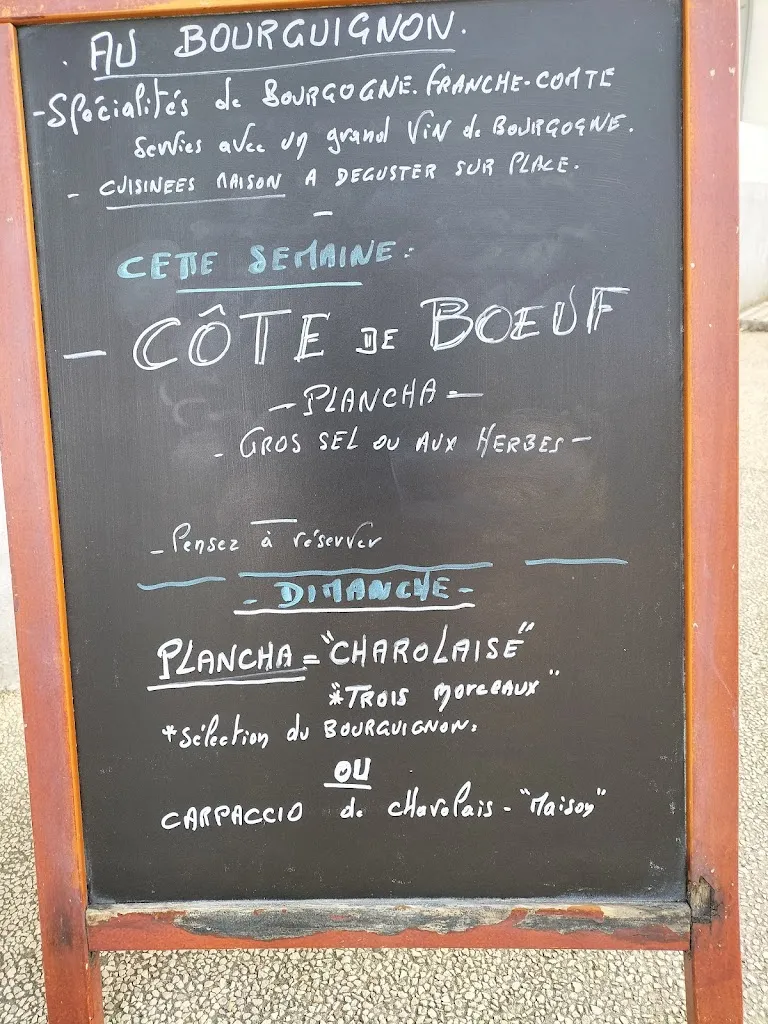 . AU BOURGUIGNON.
- Spécialités de BOURGOGNE. FRANCHE-COMTE
Servies avec un grand Vin de BOURGOGNE.
- CUISINEES MAISON A DEGUSTER SUR PLACE.
CETTE SEMAINE:
- CÔTE DE BOEUF
- PLANCHA -
- GROS SEL OU AUX HERBES -
- Pensez à réserver
- DIMANCHE -
PLANCHA = "CHAROLAISE"
"*TROIS MORCEAUX"
*Sélection du BOURGUIGNON.
OU
CARPACCIO de charolais - "Maison"